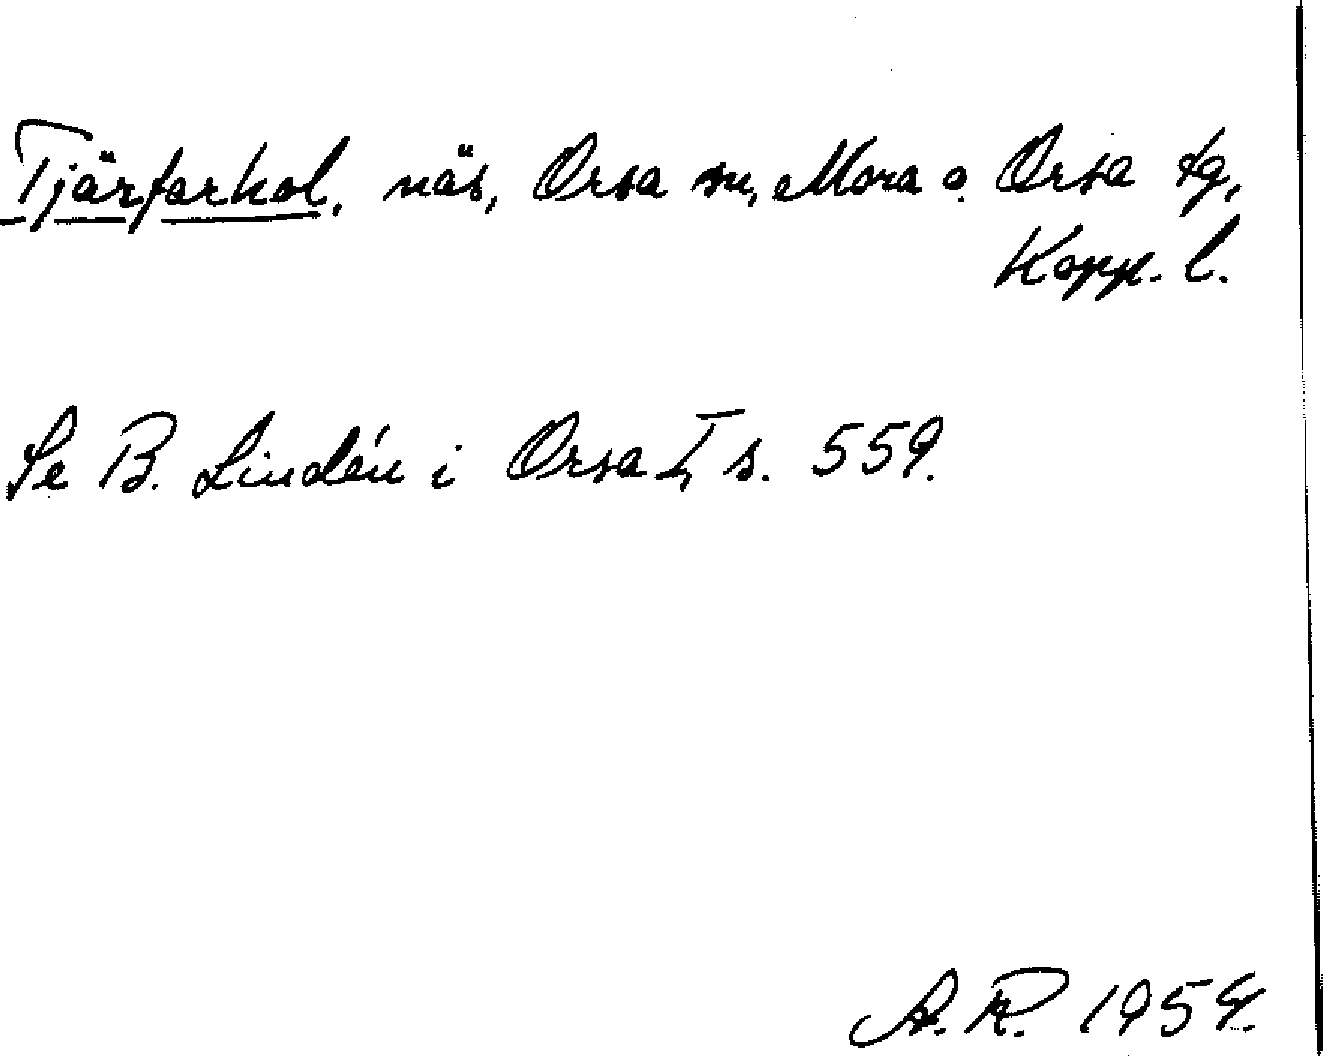 Tjärfarkol, näs, Orsa sn, Mora o. Orsa tg,
Kopp. l.
Se B. Lindén i Orsa I, s. 559.
A. R. 1954.